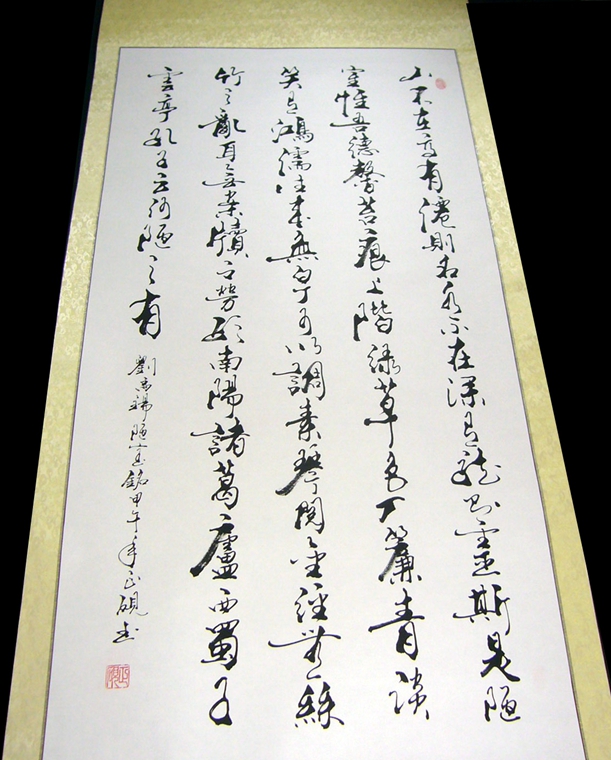 山不在高有僊則名水不在深有龍則靈斯是陋
室惟吾德馨苔痕上階綠草色入簾青談
笑有鴻儒往來無白丁可以調素琴閱金經無絲
竹之亂耳無案牘之勞形南陽諸葛廬西蜀子
雲亭孔子云何陋之有
劉禹錫陋室銘甲午年正硯書